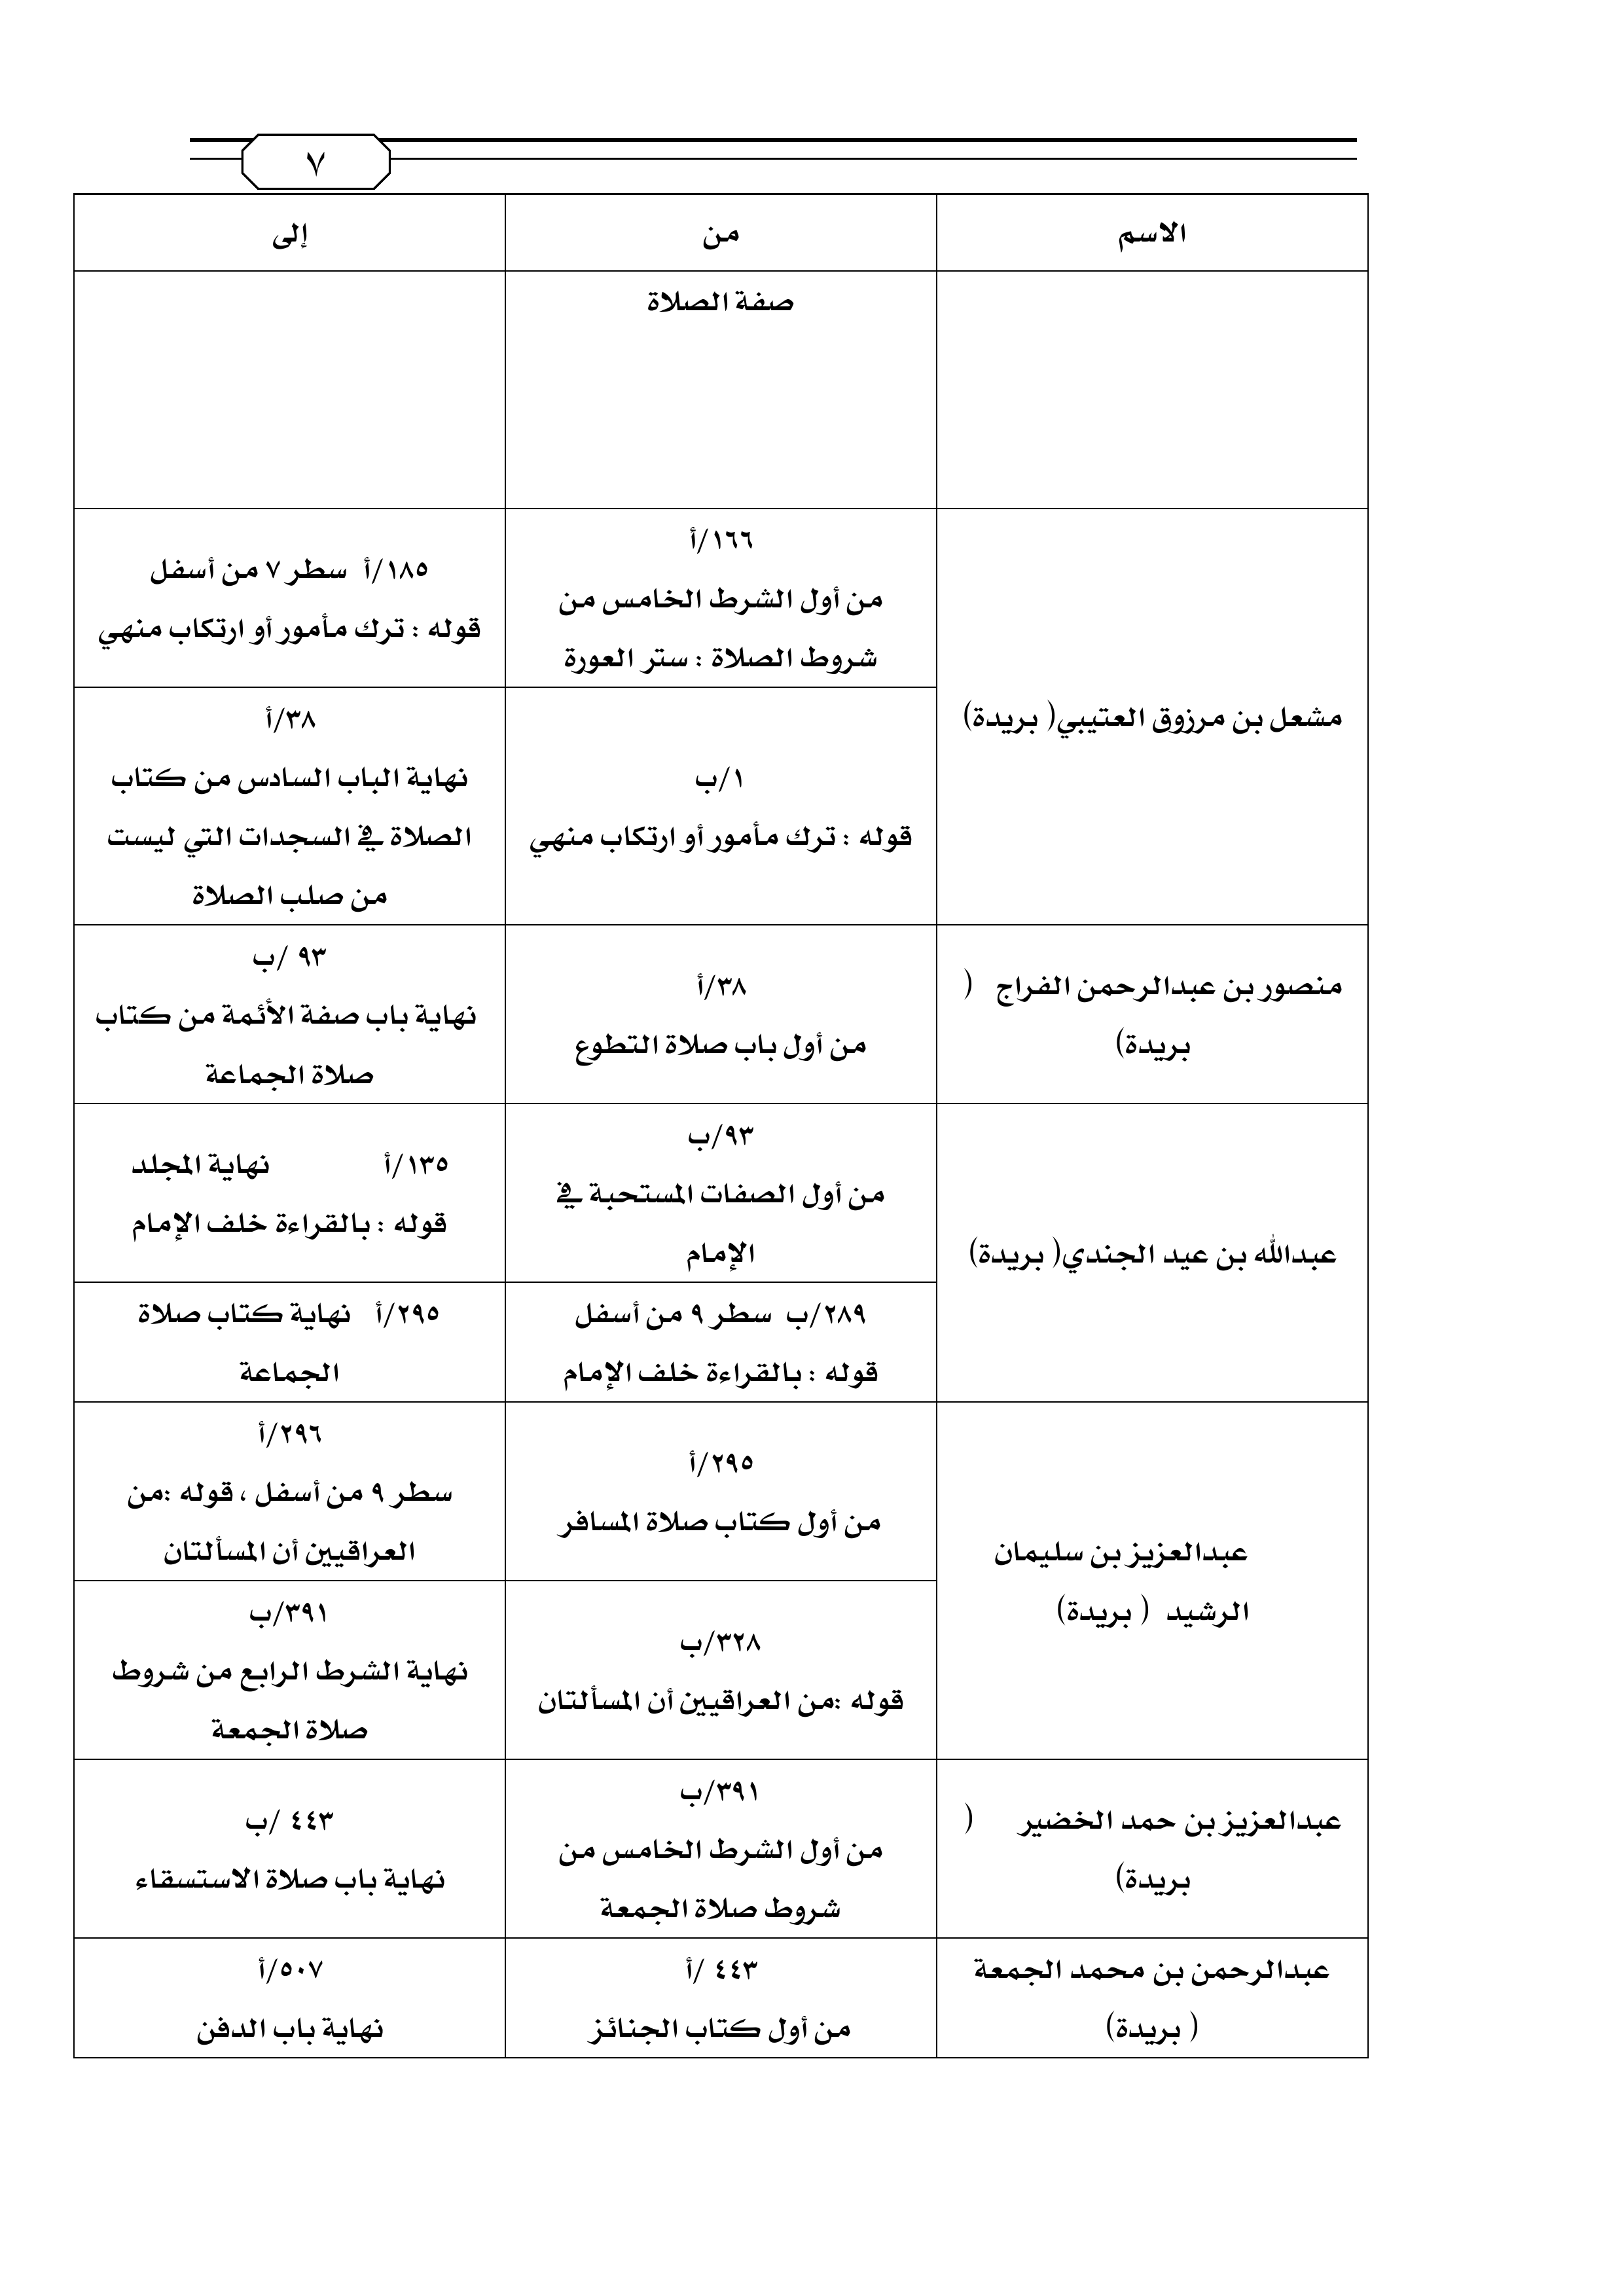 ٧
الاسم
من
إلى
صفة الصلاة
مشعل بن مرزوق العتيبي( بريدة)
١٦٦/أ
من أول الشرط الخامس من
شروط الصلاة : ستر العورة
١٨٥/أ سطر ٧ من أسفل
قوله : ترك مأمور أو ارتكاب منهي
١/ب
قوله : ترك مأمور أو ارتكاب منهي
٣٨/أ
نهاية الباب السادس من كتاب
الصلاة في السجدات التي ليست
من صلب الصلاة
منصور بن عبدالرحمن الفراج (
بريدة)
٣٨/أ
من أول باب صلاة التطوع
٩٣ /ب
نهاية باب صفة الأئمة من كتاب
صلاة الجماعة
عبدالله بن عيد الجندي( بريدة)
٩٣/ب
من أول الصفات المستحبة في
الإمام
١٣٥/أ نهاية المجلد
قوله : بالقراءة خلف الإمام
٢٨٩/ب سطر ٩ من أسفل
قوله : بالقراءة خلف الإمام
٢٩٥/أ نهاية كتاب صلاة
الجماعة
عبدالعزيز بن سليمان
الرشيد ( بريدة)
٢٩٥/أ
من أول كتاب صلاة المسافر
٢٩٦/أ
سطر ٩ من أسفل ، قوله :من
العراقيين أن المسألتان
٣٢٨/ب
قوله :من العراقيين أن المسألتان
٣٩١/ب
نهاية الشرط الرابع من شروط
صلاة الجمعة
عبدالعزيز بن حمد الخضير (
بريدة)
٣٩١/ب
من أول الشرط الخامس من
شروط صلاة الجمعة
٤٤٣ /ب
نهاية باب صلاة الاستسقاء
عبدالرحمن بن محمد الجمعة
( بريدة)
٤٤٣ /أ
من أول كتاب الجنائز
٥٠٧/أ
نهاية باب الدفن